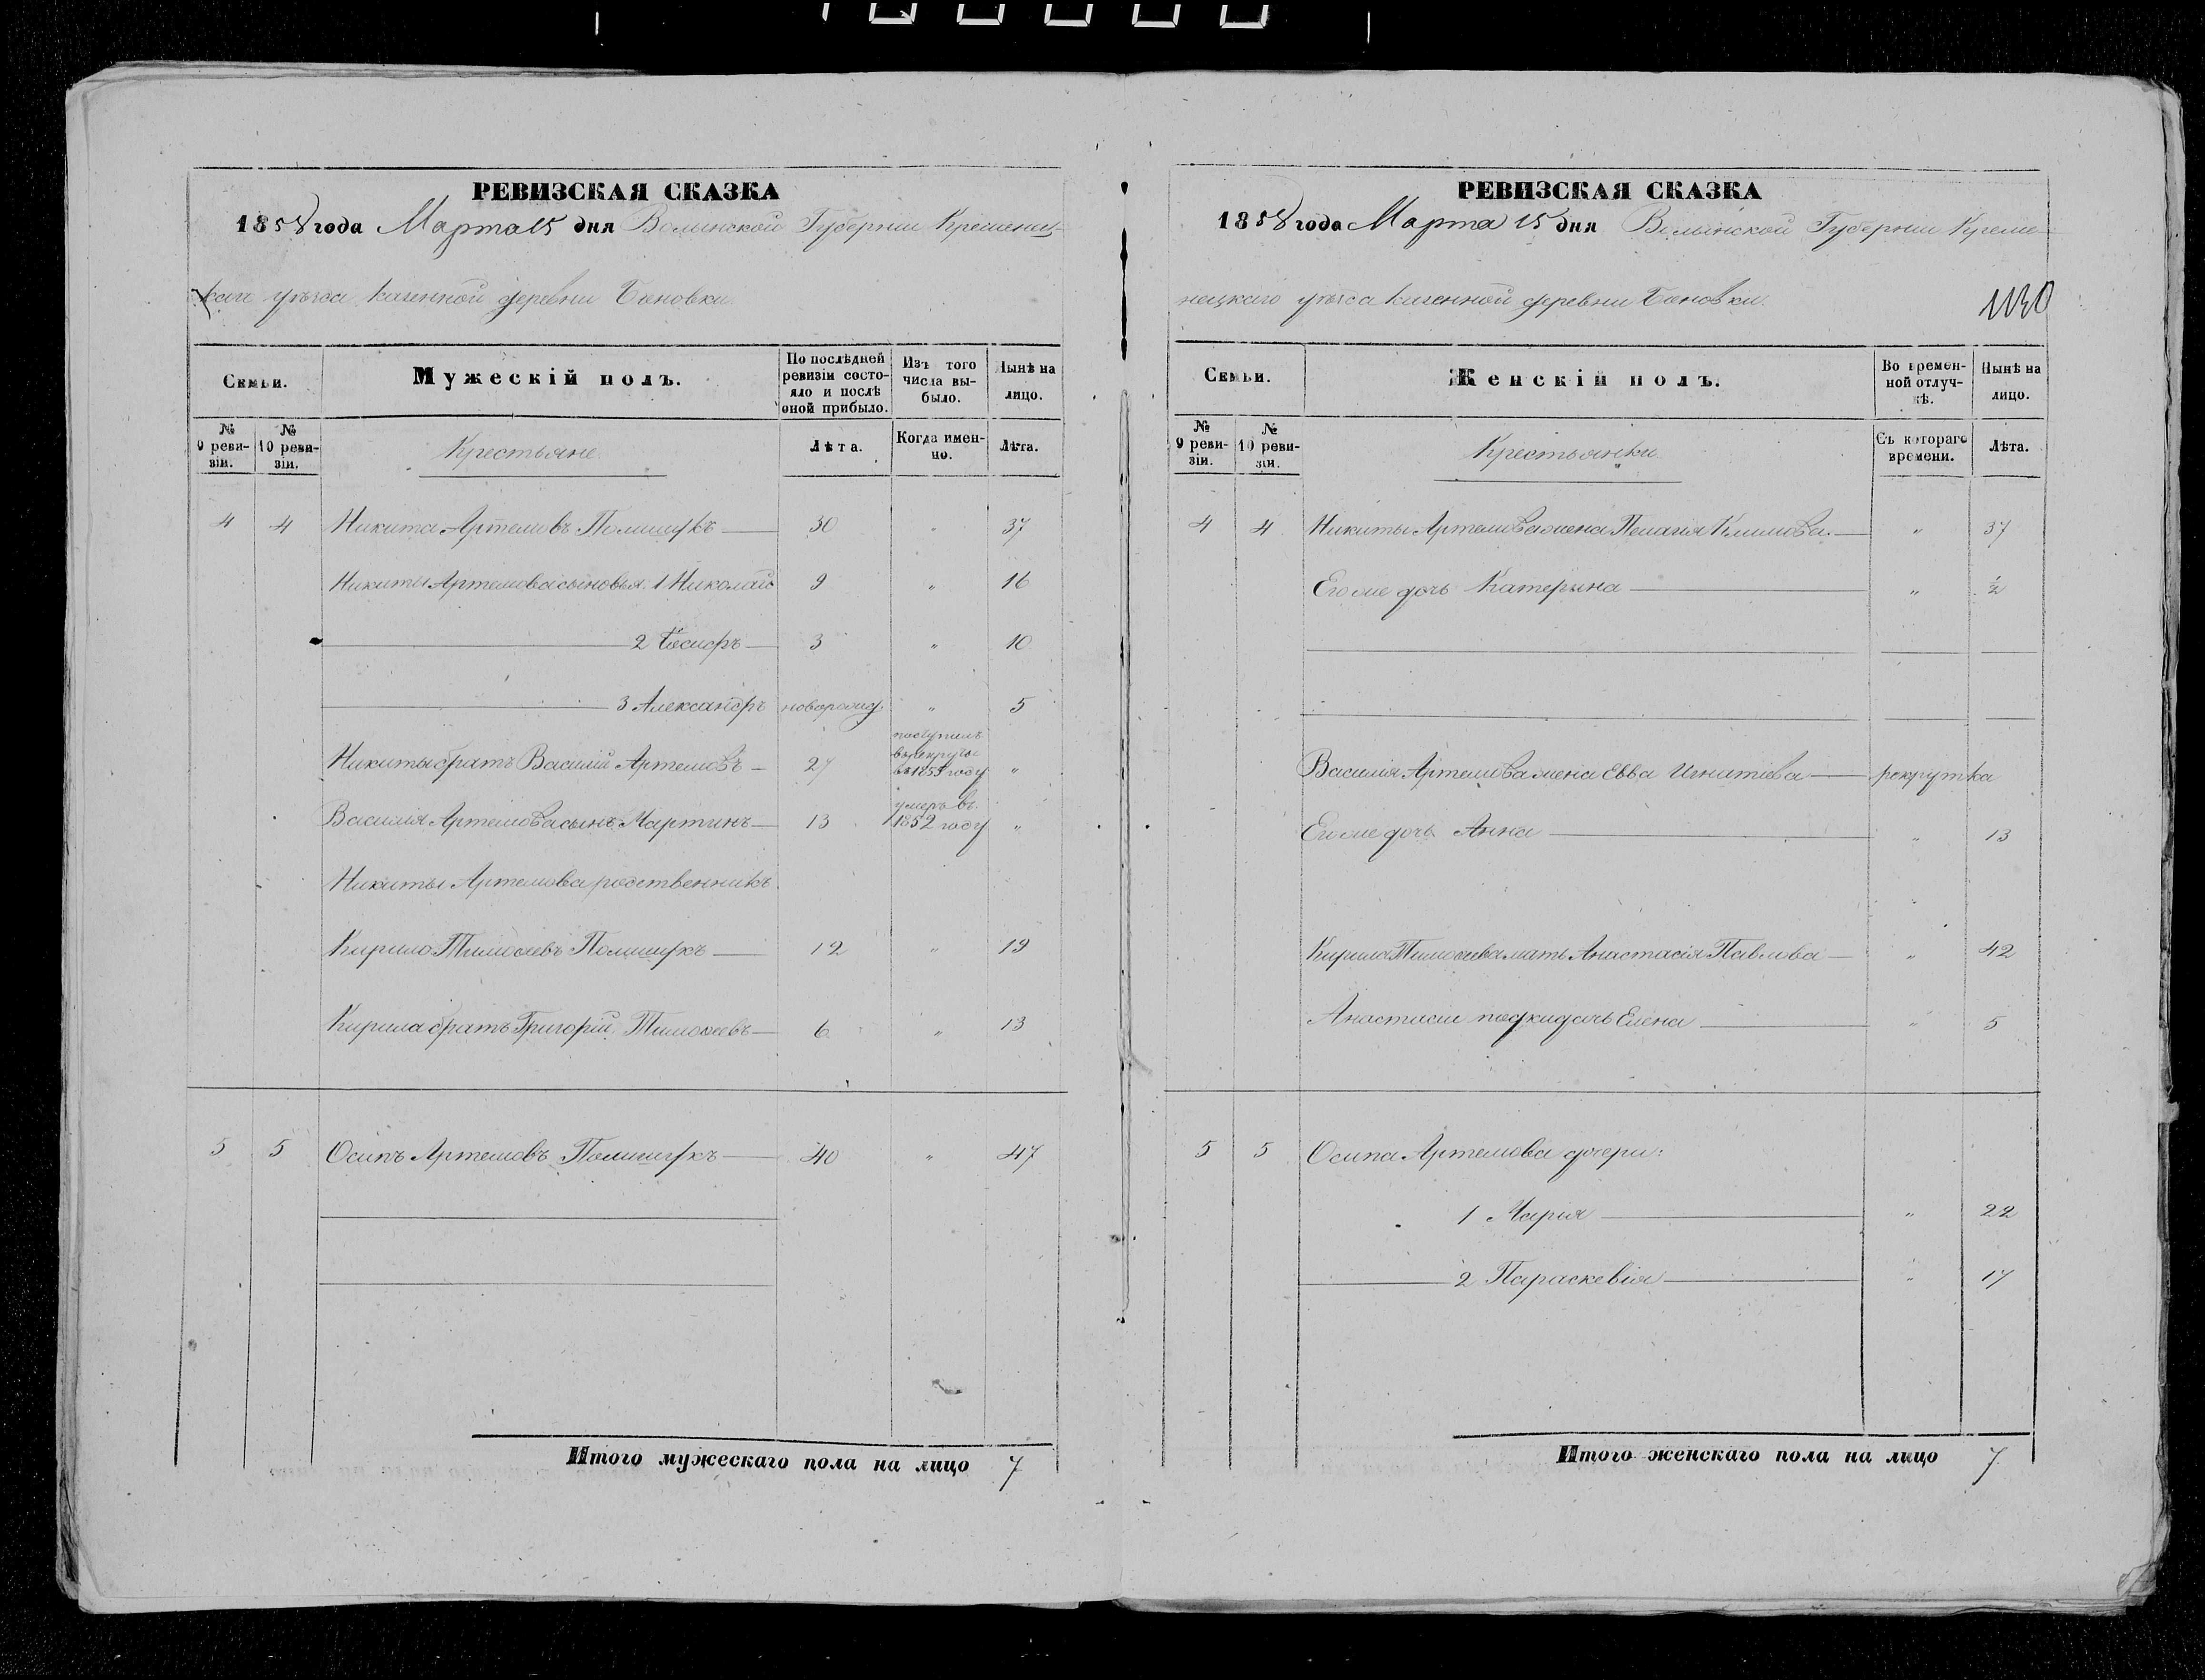 РЕВИЗСКАЯ СКАЗКА
1858 года Марта 15 дня Волынской Губернии Кременец-
каго уѣзда казенной деревни Бановки
Семьи. Мужескій полъ. По послѣдней ревизіи состояло и послѣ оной прибыло. Изъ того числа выбыло. Нынѣ на лицо.
№ 9 ревизіи. № 10 ревизіи. Крестьяне Лѣта. Когда именно. Лѣта.
4 4 Никита Артемовъ Полищукъ 30 " 37
Никиты Артемова сыновья 1 Николай 9 " 16
2 Іосифъ 3 " 10
3 Александръ новорожд. " 5
Никиты братъ Василій Артемовъ 27 поступилъ въ рекруты в 1854 году "
Василія Артемова сынъ Мартинъ 13 умеръ въ 1852 году "
Никиты Артемова родственникъ
Кирило Тимофеевъ Полищукъ 12 " 19
Кирила братъ Григорій Тимофеевъ 6 " 13
5 5 Осипъ Артемовъ Полищукъ 40 " 47
Итого мужескаго пола на лицо 7
РЕВИЗСКАЯ СКАЗКА
1858 года Марта 15 дня Волынской Губернии Креме-
нецкаго уѣзда казенной деревни Бановки.
Семьи. Женскій полъ. Во временной отлучкѣ. Нынѣ на лицо.
№ 9 ревизіи. № 10 ревизіи. Крестьянки Съ котораго времени. Лѣта.
4 4 Никиты Артемова жена Пелагія Климова " 37
Его же дочь Катерина " ½
Василія Артемова жена Евва Игнатіева рекрутка
Его же дочь Анна " 13
Кирила Тимофеева мать Анастасія Павлова " 42
Анастасіи подкидачь Елена " 5
5 5 Осипа Артемова дочери:
1 Марія " 22
2 Параскевія " 17
Итого женскаго пола на лицо 7